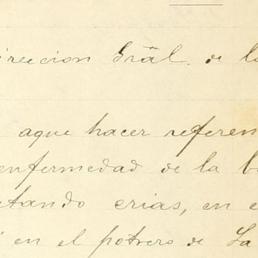 ireccion Grãl. de la
aque hacer referen
enfermedad de la b
tando crias, en e
en el potrero de La